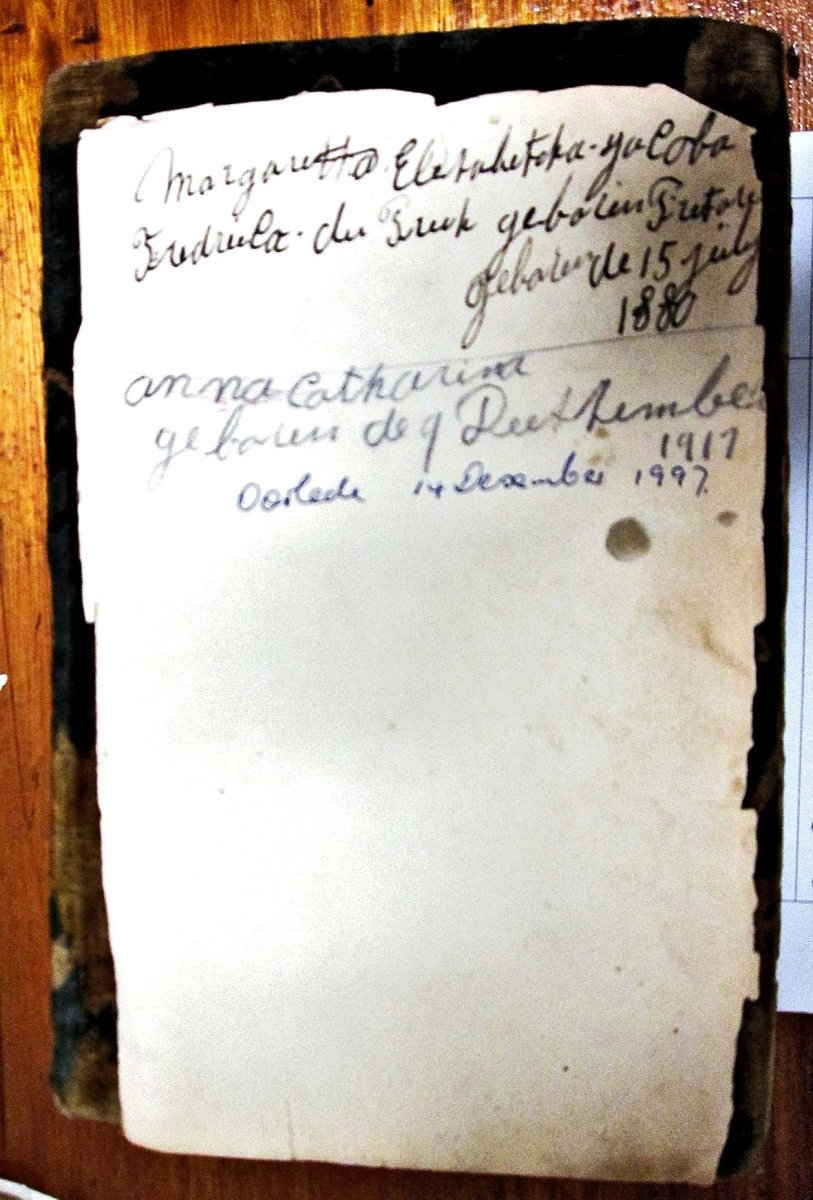 Margaretta Elizabetha. yacoba
Fredrieka. du Preek geboren
geboren de 15 july
1880
anna Catharina
geboren de 9 Desember
1917
Oorlede 14 Desember 1997.